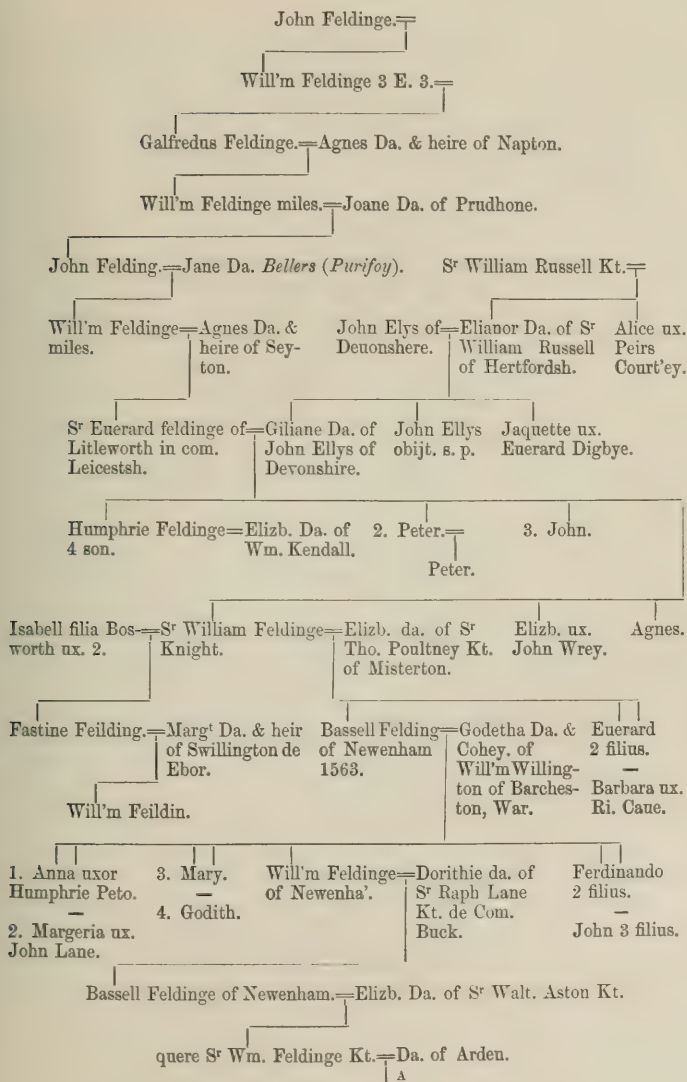 John Feldinge.
Will'm Feldinge 3 E. 3.
Galfredus Feldinge.=Agnes Da. & heire of Napton.
Will'm Feldinge miles.=Joane Da. of Prudhone.
John Felding.=Jane Da. Bellers (Purifoy).
Sr William Russell Kt.
Will'm Feldinge=Agnes Da. &
miles.
heire of Sey-
ton.
John Elys of=Elianor Da. of Sr
Deuonshere.
William Russell
of Hertfordsh.
Alice ux.
Peirs
Court'ey.
Sr Euerard feldinge of=Giliane Da. of
Litleworth in com.
Leicestsh.
John Ellys of
Devonshire.
John Ellys
obijt. s. p.
Jaquette ux.
Euerard Digbye.
Humphrie Feldinge=Elizb. Da. of
4 son.
Wm. Kendall.
2. Peter.=
Peter.
3. John.
Isabell filia Bos-=Sr William Feldinge=Elizb. da. of Sr
worth ux. 2.
Knight.
Tho. Poultney Kt.
of Misterton.
Elizb. ux.
John Wrey.
Agnes.
Fastine Feilding.=Margt Da. & heir
of Swillington de
Ebor.
Will'm Feildin.
Bassell Felding=Godetha Da. &
of Newenham
1563.
Cohey. of
Will'm Willing-
ton of Barches-
ton, War.
Euerard
2 filius.
—
Barbara ux.
Ri. Caue.
1. Anna uxor
Humphrie Peto.
—
2. Margeria ux.
John Lane.
3. Mary.
—
4. Godith.
Will'm Feldinge=Dorithie da. of
of Newenha'.
Sr Raph Lane
Kt. de Com.
Buck.
Ferdinando
2 filius.
—
John 3 filius.
Bassell Feldinge of Newenham.=Elizb. Da. of Sr Walt. Aston Kt.
quere Sr Wm. Feldinge Kt.=Da. of Arden.
A